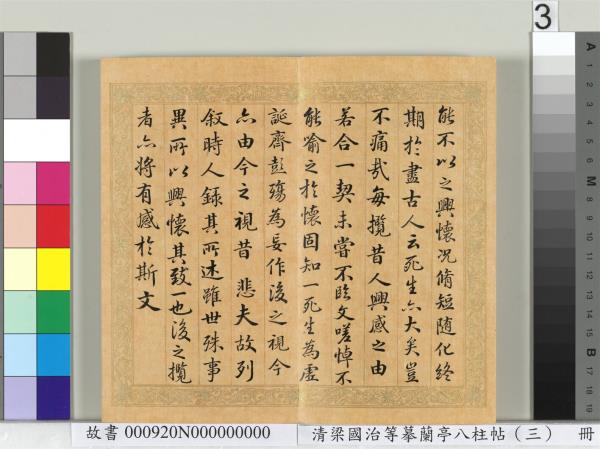 能不以之興懷況脩短随化終
期於盡古人云死生亦大矣豈
不痛哉每攬昔人興感之由
若合一契未嘗不臨文嗟悼不
能喻之於懷固知一死生為虛
誕齊彭殤為妄作後之視今
亦由今之視昔 悲夫故列
敘時人錄其所述雖世殊事
異所以興懷其致一也後之攬
者亦將有感於斯文
3
A 1 2 3 4 5 6 M 8 9 10 11 12 13 14 15 B 17 18 19
故書 000920N000000000
清梁國治等摹蘭亭八柱帖（三） 冊